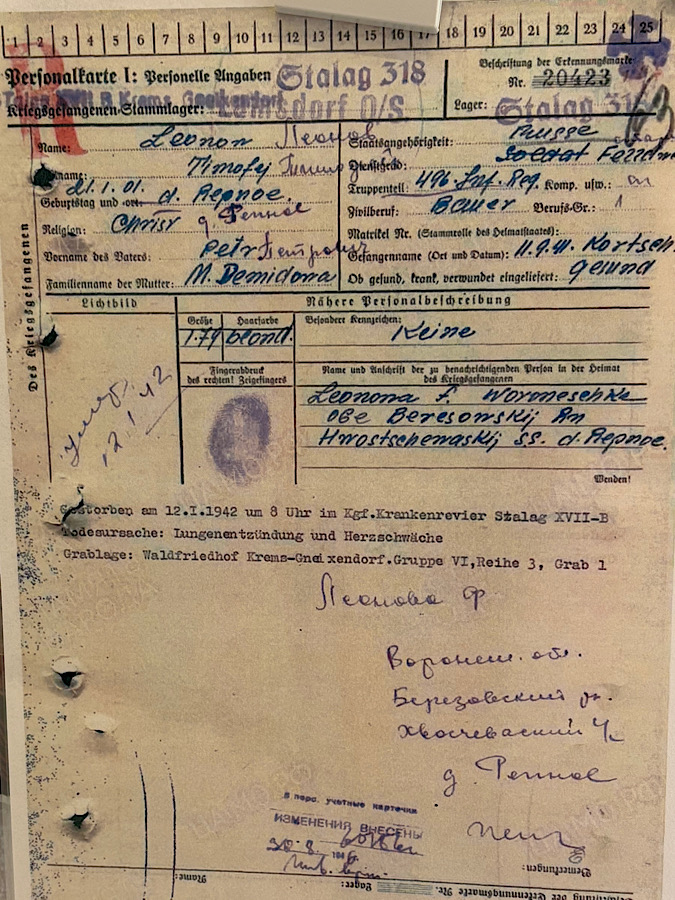 1 2 3 4 5 6 7 8 9 10 11 12 13 14 15 16 17 18 19 20 21 22 23 24 25
Personalkarte I: Personelle Angaben
Stalag 318
Kriegsgefangenen-Stammlager:
Lamsdorf O/S
Beschriftung der Erkennungsmarke
Nr. 20423
Lager: Stalag
Des Kriegsgefangenen
Name: Leonow Леонов
Timofej
Geburtstag und 21.1.01. d. Repnoe.
Religion: Christ д. Репное
Vorname des Vaters: Petr Петрович
Familienname der Mutter: M. Demidowa
Staatsangehörigkeit: Russe
Dienstgrad: Soldat
Truppenteil: 496. Inf. Reg. Komp. usw.:
Zivilberuf: Bauer Berufs-Gr.: 1
Matrikel Nr. (Stammrolle des Heimatstaates):
Gefangennahme (Ort und Datum): 11.9.41.
Ob gesund, krank, verwundet eingeliefert: gesund
Lichtbild
Nähere Personalbeschreibung
Größe Haarfarbe
1.79 blond.
Besondere Kennzeichen:
Keine
Fingerabdruck
des rechten! Zeigefingers
Name und Anschrift der zu benachrichtigenden Person in der Heimat
des Kriegsgefangenen
Leonowa F. Woroneschke
obe Beresowskij Rn
Hwostschewaskij ss. d. Repnoe.
Wenden!
12.1.42
Gestorben am 12.I.1942 um 8 Uhr im Kgf.Krankenrevier Stalag XVII-B
Todesursache: Lungenentzündung und Herzschwäche
Grablage: Waldfriedhof Krems-Gneixendorf.Gruppe VI,Reihe 3, Grab 1
Леонова Ф
Воронеш. обл.
Березовский рн.
Хвосчеваский
д Репное
В перс. учетные карточки
ИЗМЕНЕНИЯ ВНЕСЕНЫ
30.8.
Bemerkungen:
Name:
Lager:
Beschriftung der Erkennungsmarke Nr.